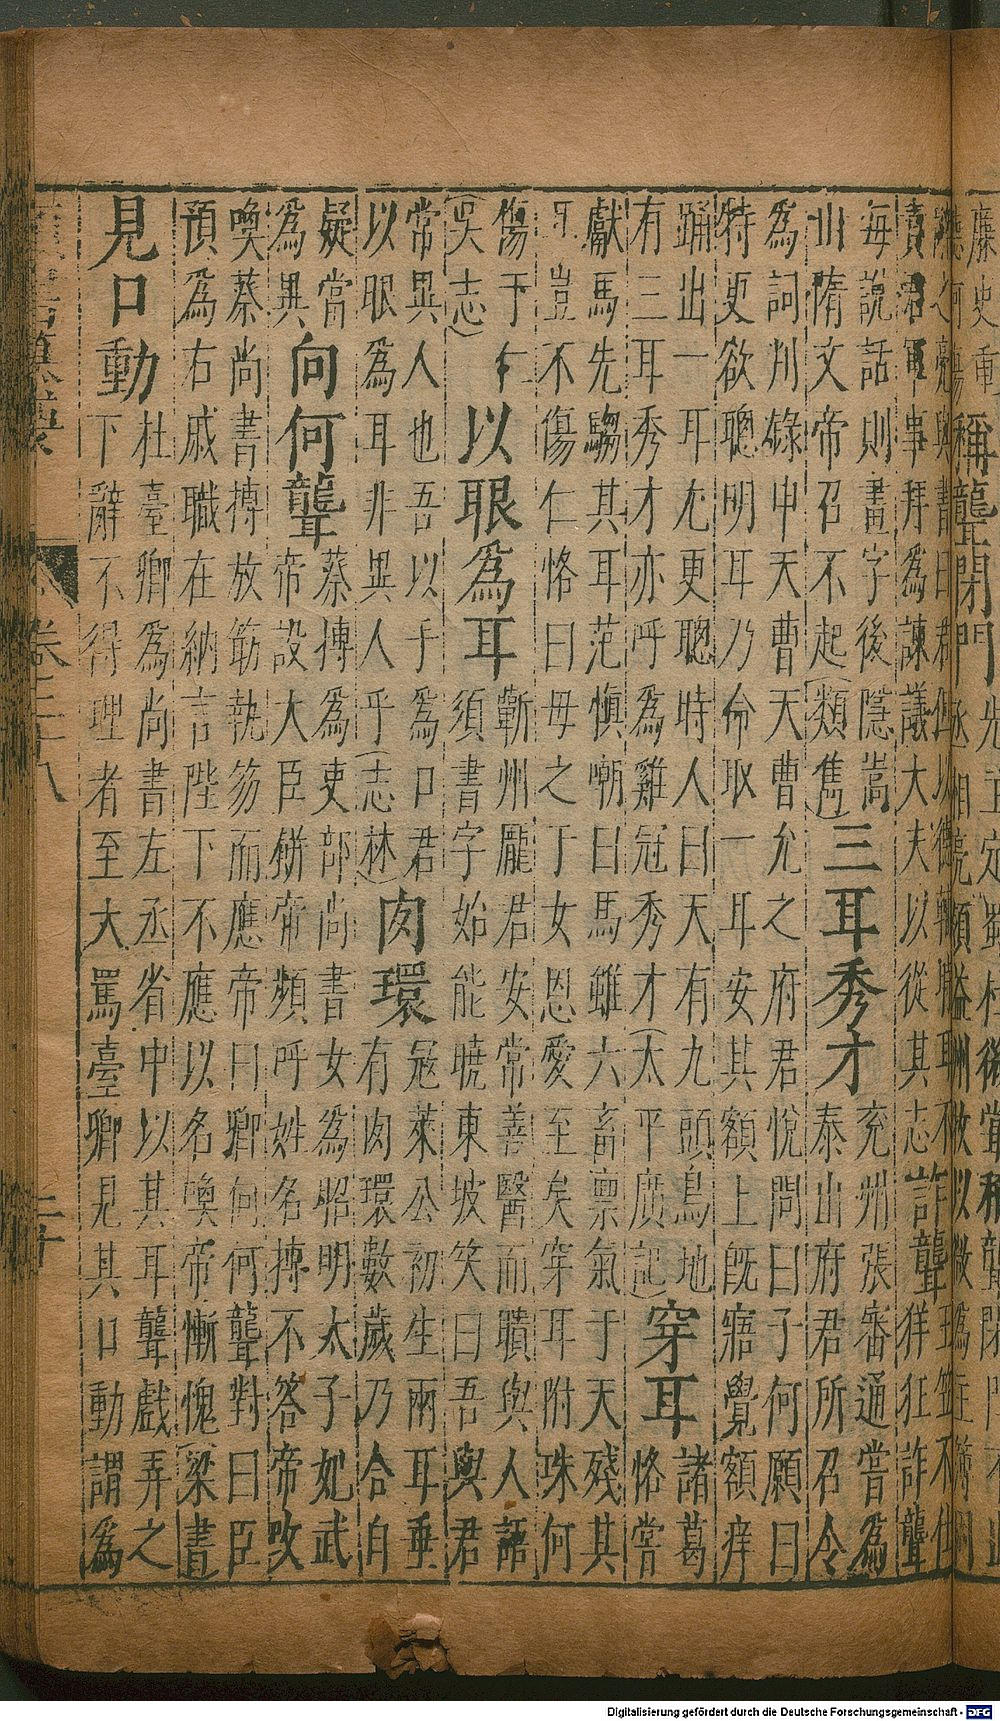 稱聾閉門
軍事拜為諫議大夫以從其志
詐聾
佯狂詐聾
每說話則畫字後隱嵩
山隋文帝召不起(類雋)
三耳秀才
兖州張審通嘗為
泰山府君所召令
為詞判錄申天曹天曹允之府君悅問曰子何願曰
特更欲聰明耳乃命取一耳安其額上既寤覺額痒
踊出一耳尤更聰時人曰天有九頭鳥地
有三耳秀才亦呼為雞冠秀才(太平廣記)
穿耳
諸葛
恪嘗
獻馬先䮛其耳范慎嘲曰馬雖六畜稟氣于天殘其
耳豈不傷仁恪曰母之于女恩愛至矣穿耳附珠何
傷于仁
(吳志)
以眼為耳
蘄州龐君安常善醫而聵與人語
須書字始能曉東坡笑曰吾與君
常異人也吾以手為口君
以眼為耳非異人乎(志林)
肉環
寇萊公初生兩耳垂
有肉環數歲乃合自
疑當
為異
向何聾
蔡摶為吏部尚書女為昭明太子妃武
帝設大臣餅帝頻呼姓名摶不答帝改
喚蔡尚書摶放筯執笏而應帝曰卿何何聾對曰臣
預為右戚職在納言陛下不應以名喚帝慚愧(梁書)
見口動
杜臺卿為尚書左丞省中以其耳聾戲弄之
下辭不得理者至大罵臺卿見其口動謂為
卷三十八
二十
Digitalisierung gefördert durch die Deutsche Forschungsgemeinschaft - DFG